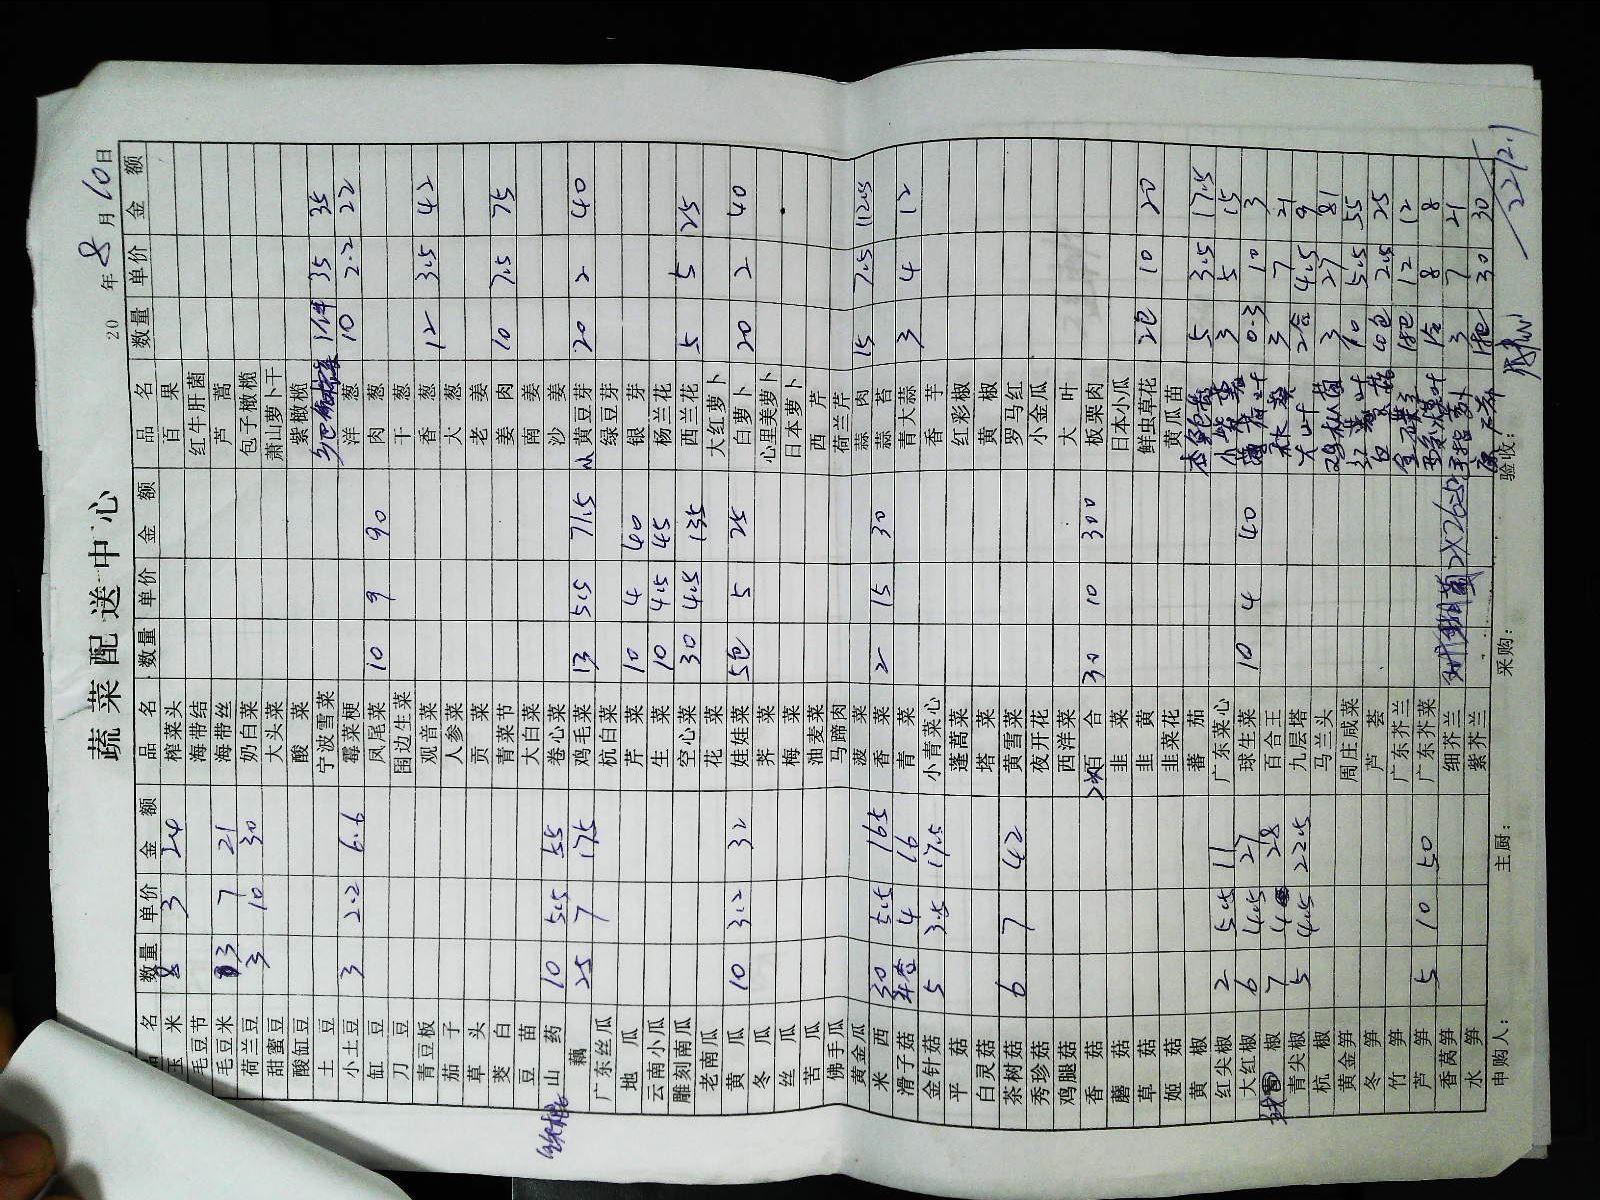 蔬菜配送中心
20 年8月10日
名 数量 单价 金额 品名 数量 单价 金额 品名 数量 单价 金额
玉米 8 3 24 榨菜头 百果
毛豆节 海带结 红牛肝菌
毛豆米 3 7 21 海带丝 芦蒿
荷兰豆 3 10 30 奶白菜 包子橄榄
甜蜜豆 大头菜 萧山萝卜干
酸缸豆 酸菜 紫橄榄
土豆 宁波雪菜 1件 35 35
小土豆 3 2.2 6.6 霉菜梗 洋葱 10 2.2 22
缸豆 凤尾菜 10 9 90 肉葱
刀豆 围边生菜 干葱
青豆板 观音菜 香葱 12 3.5 42
茄子 人参菜 大葱
草头 贡菜 老姜
茭白 青菜节 姜肉 10 7.5 75
豆苗 大白菜 南姜
山药 10 5.5 55 卷心菜 沙姜
藕 25 7 175 鸡毛菜 13 5.5 71.5 黄豆芽 20 2 40
广东丝瓜 杭白菜 绿豆芽
地瓜 芹菜 10 4 40 银芽
云南小瓜 生菜 10 4.5 45 杨兰花
雕刻南瓜 空心菜 30 4.5 135 西兰花 5 5 25
老南瓜 花菜 大红萝卜
黄瓜 10 3.2 32 娃娃菜 5包 5 25 白萝卜 20 2 40
冬瓜 荠菜 心里美萝卜
丝瓜 梅菜 日本萝卜
苦瓜 油麦菜 西芹
佛手瓜 马蹄肉 荷兰芹
黄金瓜 菠菜 蒜肉 15 7.5 112.5
米西 30 5.5 165 香菜 2 15 30 蒜苔
滑子菇 4合 4 16 青菜 青大蒜 3 4 12
金针菇 5 3.5 17.5 小青菜心 香芋
平菇 蓬蒿菜 红彩椒
白灵菇 塔菜 黄椒
茶树菇 6 7 42 黄雪菜 罗马红
秀珍菇 夜开花 小金瓜
鸡腿菇 西洋菜 大叶
香菇 百合 30 10 300 板栗肉
蘑菇 韭菜 日本小瓜
草菇 韭黄 鲜虫草花 2包 10 20
姬菇 韭菜花 黄瓜苗
黄椒 蕃茄 杏鲍菇 5 3.5 17.5
红尖椒 2 5.5 11 广东菜心 3 5 15
大红椒 6 4.5 27 球生菜 10 4 40 薄荷叶 0.3 10 3
椒 7 4 28 百合王 3 7 21
青尖椒 5 4.5 22.5 九层塔 大叶 2合 4.5 9
杭椒 马兰头 鸡枞菌 3 27 81
黄金笋 周庄咸菜 10 5.5 55
冬笋 芦荟 白 菇 10包 2.5 25
竹笋 广东芥兰 1包 12 12
芦笋 5 10 50 广东芥菜 1合 8 8
香莴笋 细芥兰 2X26=52 手指萝卜 3 7 21
水笋 紫芥兰 1包 30 30
申购人： 主厨： 采购： 验收：
2212.1